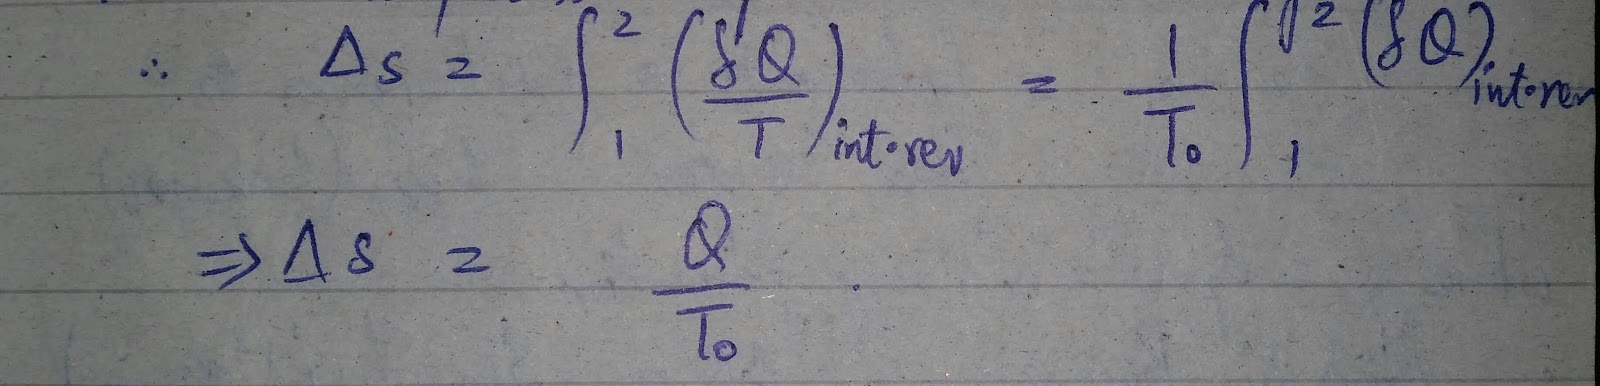 ∴ Δs = ∫₁² (δQ/T)int.rev = 1/T₀ ∫₁² (δQ)int.rev
⇒ Δs = Q/T₀.